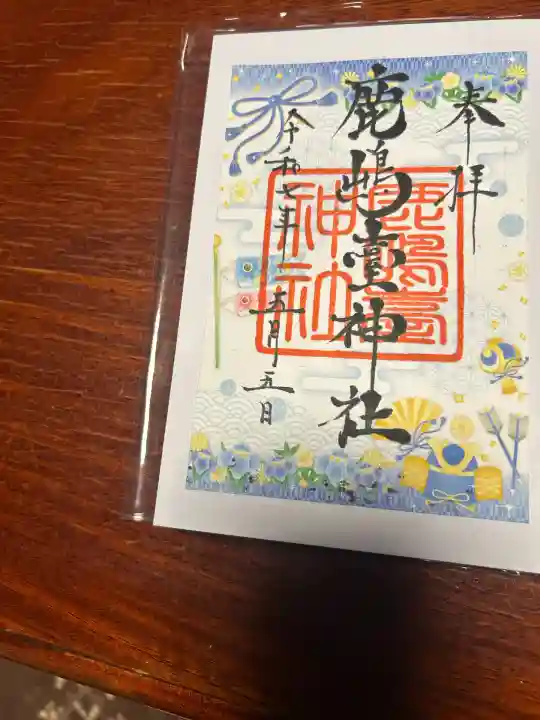 奉拝
鹿嶋臺神社
鹿嶋臺
神社
令和七年
五月五日